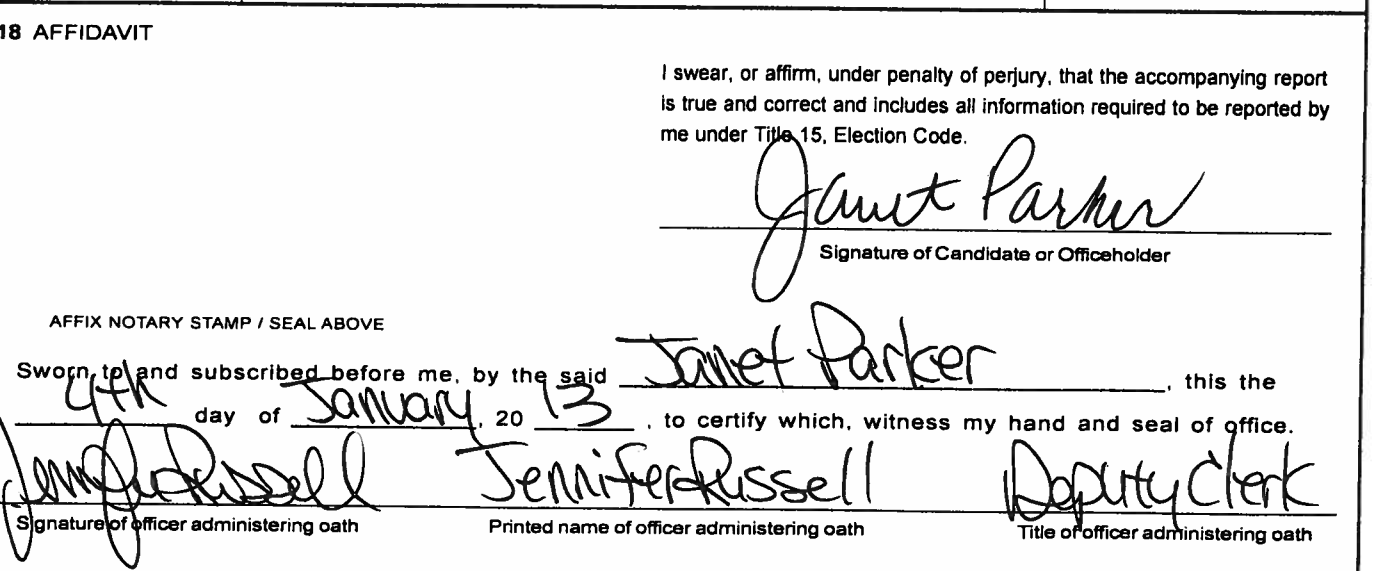 18 AFFIDAVIT
I swear, or affirm, under penalty of perjury, that the accompanying report
is true and correct and includes all information required to be reported by
me under Title 15, Election Code.
Janet Parker
Signature of Candidate or Officeholder
AFFIX NOTARY STAMP / SEAL ABOVE
Sworn to and subscribed before me, by the said Janet Parker, this the
4th day of January, 20 13, to certify which, witness my hand and seal of office.
Jennifer Russell Jennifer Russell Deputy Clerk
Signature of officer administering oath Printed name of officer administering oath Title of officer administering oath